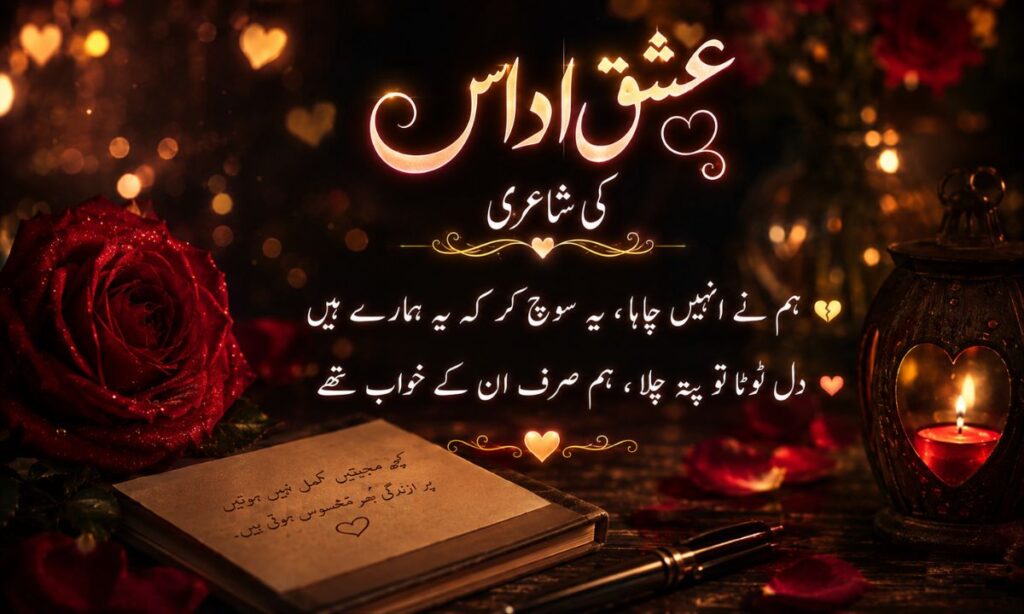 عشق اداس
کی شاعری
ہم نے انہیں چاہا، یہ سوچ کر کہ یہ ہمارے ہیں
دل ٹوٹا تو پتہ چلا، ہم صرف ان کے خواب تھے
کچھ محبتیں مکمل نہیں ہوتیں
پر ازندگی بھر محسوس ہوتی ہیں۔